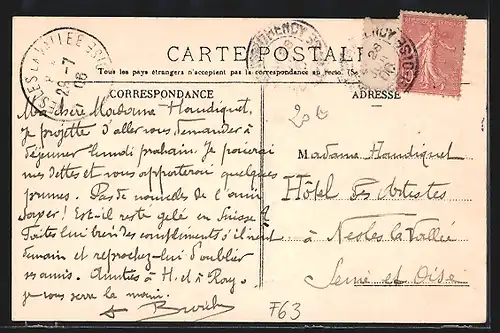 CARTE POSTALE
Tous les pays étrangers n'acceptent pas la correspondance au recto. (Se
CORRESPONDANCE
ADRESSE
NESLES LA VALLÉE
29-7
08
MONTMORENCY
Ma chère Madame Handiquet,
Je projette d'aller vous demander à
déjeuner lundi prochain. Je paierai
mes dettes et vous apporterai quelques
prunes. Pas de nouvelles de l'ami
! Est-il resté gelé en Suisse ?
Faites lui bien des compliments s'il vient
demain et reprochez-lui d'oublier
ses amis. Amitiés à H. et à Ray.
je vous serre la main.
Madame Handiquet
Hôtel des Artistes
à Nesles la Vallée
Seine et Oise
F63